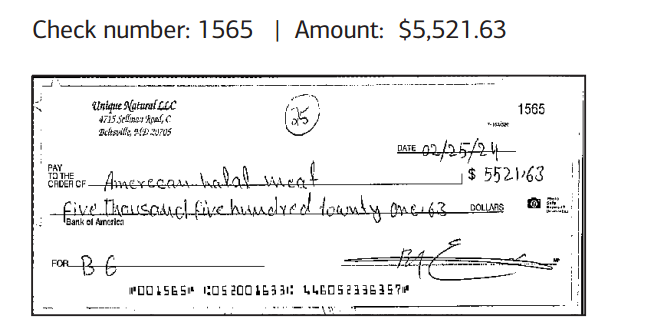 Check number: 1565 | Amount: $5,521.63
Unique Natural LLC
4715 Sellman Road, C
Beltsville, MD 20705
25
1565
DATE 02/25/24
PAY TO THE ORDER OF Amerecan halal meat $ 5521.63
Five thousand five hundred twenty one. 63 DOLLARS
Bank of America
FOR B G
⑈001565⑈ ⑆052001633⑆ 446052336357⑈